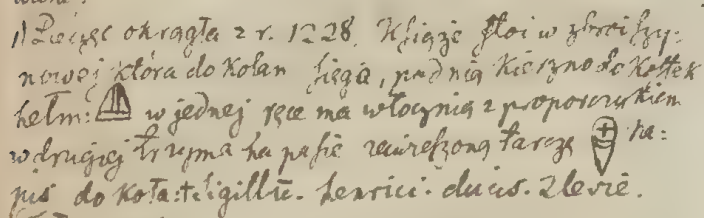 1) Pieczęć okrągła z r. 1228. Książe stoi w zbroi szy-
nowej która do kolan sięga, pod nią kieczno do kostek
hełm: w jednej ręce ma włócznią z proporczykiem
w drugiej trzyma na pasie zawieszoną tarczę na:
pis do koła: + Sigillu. henrici. ducis. Zlesie.